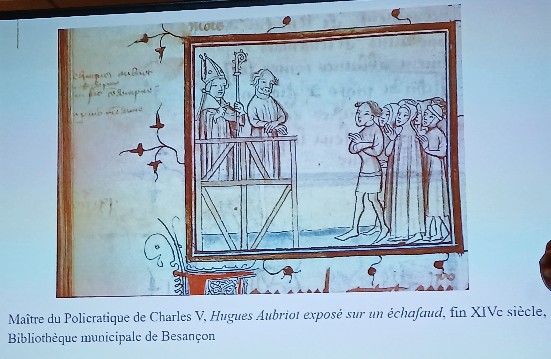 Maître du Policratique de Charles V, Hugues Aubriot exposé sur un échafaud, fin XIVe siècle,
Bibliothèque municipale de Besançon